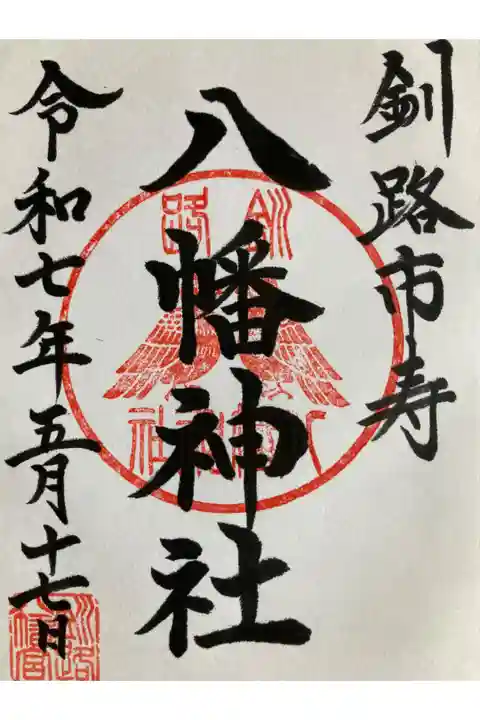 釧路市寿
八幡神社
令和七年五月十七日